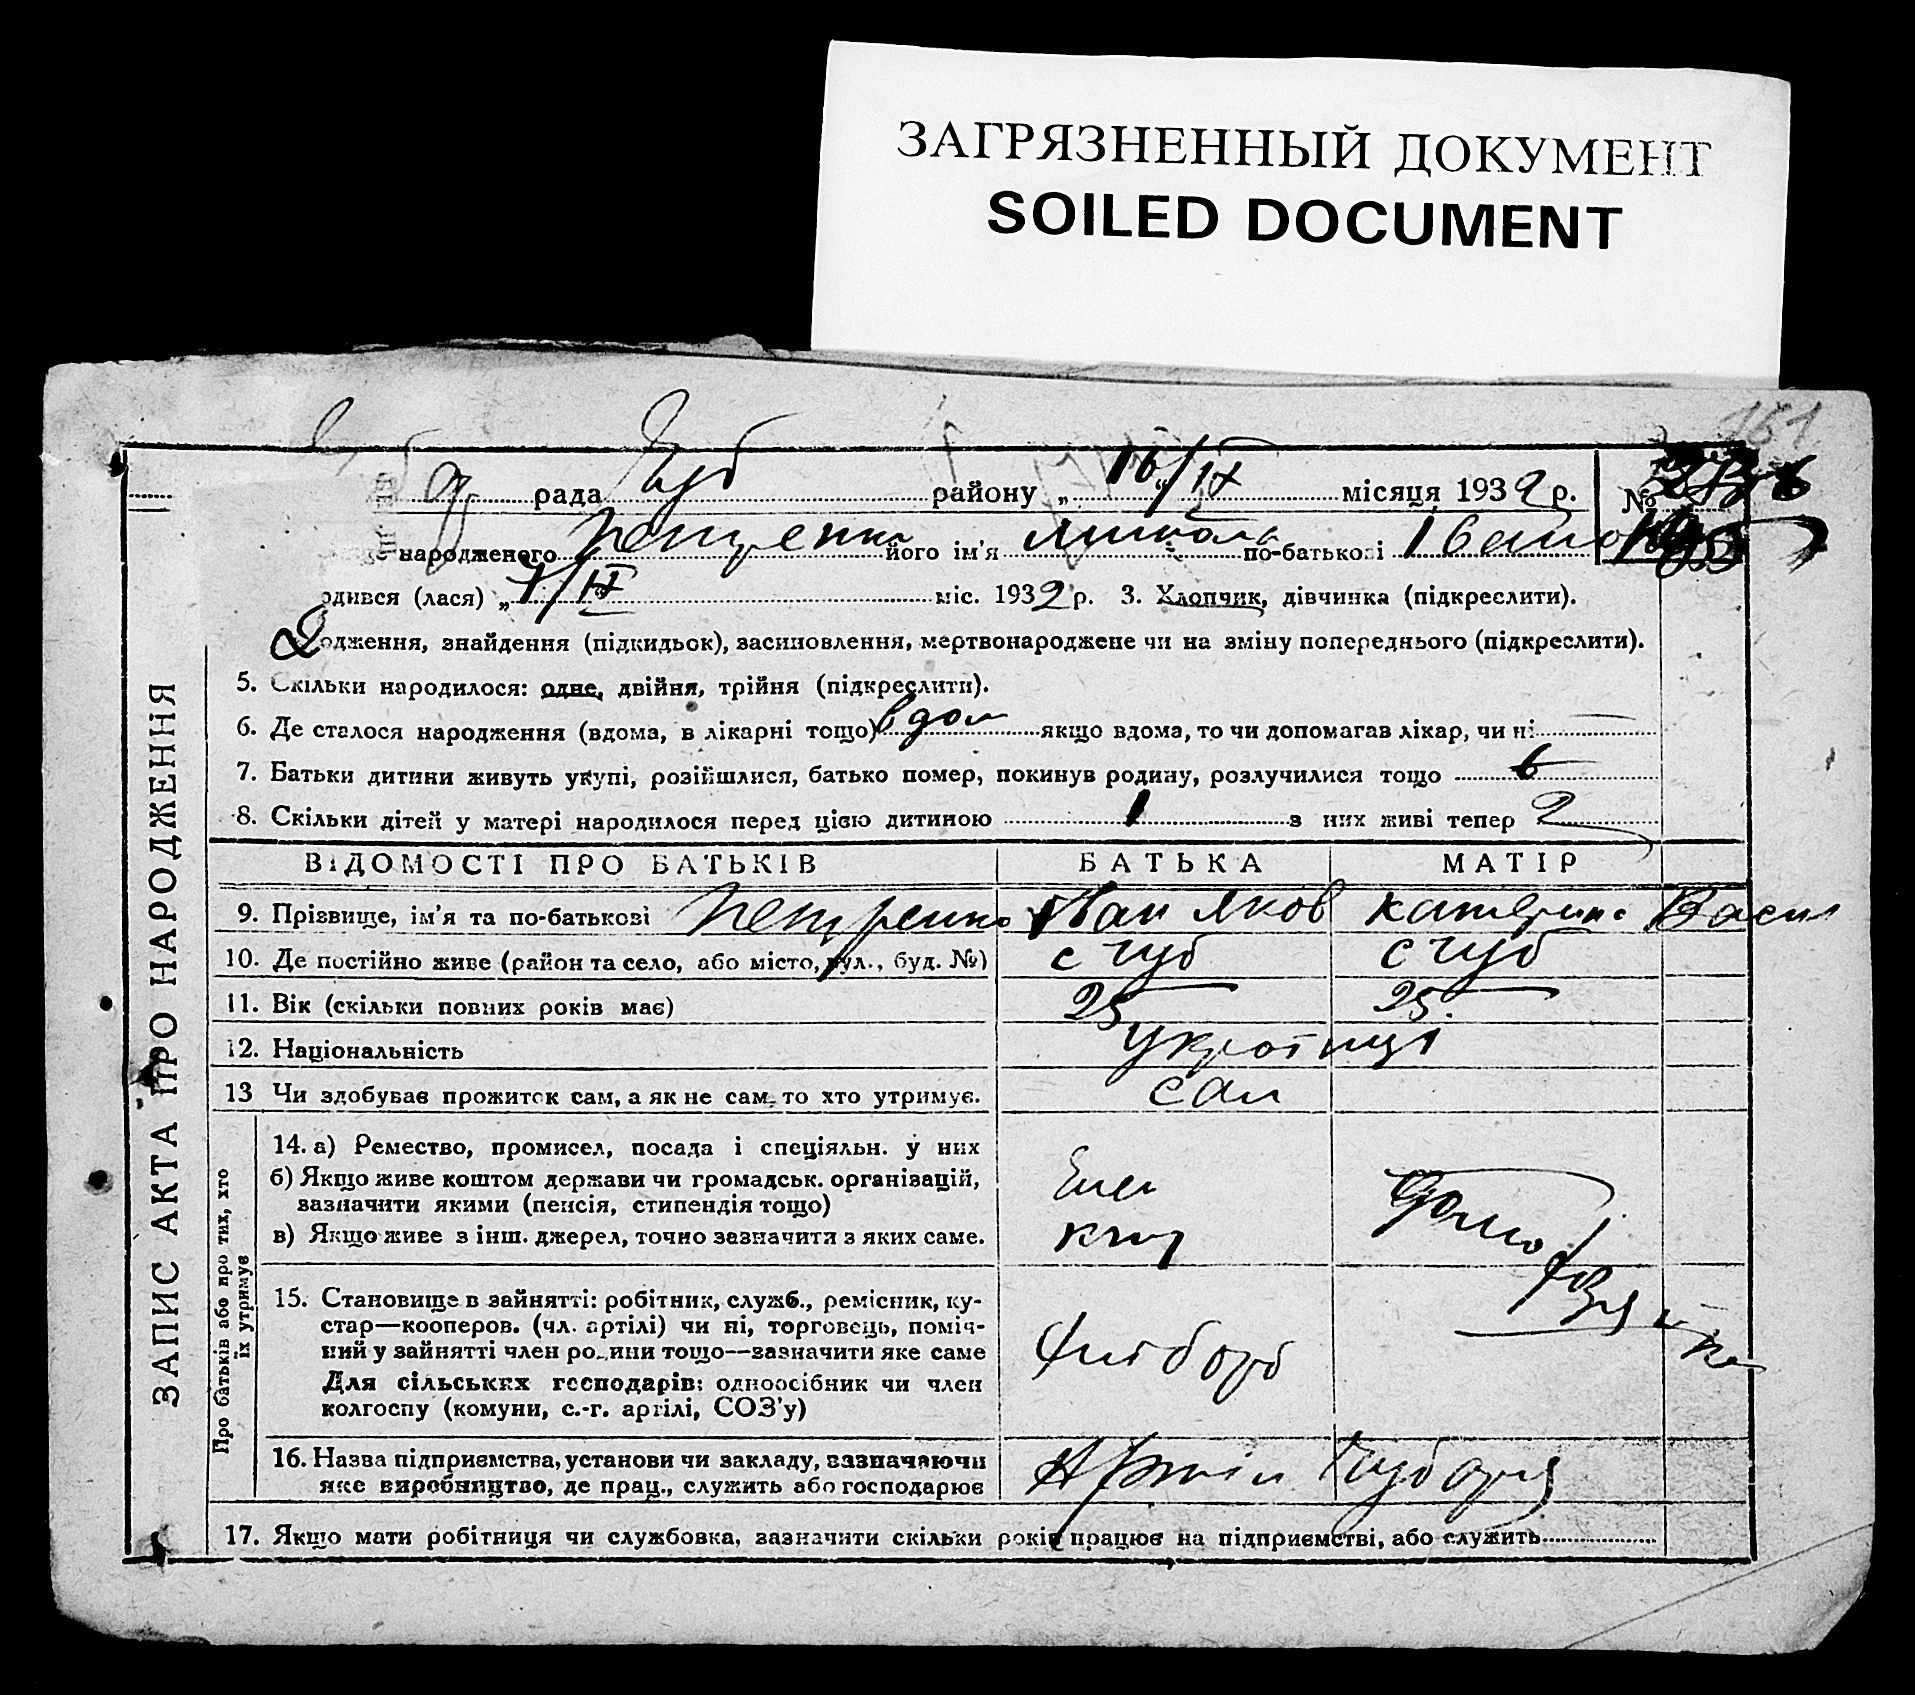 ЗАГРЯЗНЕННЫЙ ДОКУМЕНТ
SOILED DOCUMENT
рада Чуб району „ 16/IX “ місяця 1932 р. №
народженого Петренко його ім’я Микола по-батькові Іванов
одився (лася) „ 7/IX “ міс. 1932 р. 3. Хлопчик, дівчинка (підкреслити).
одження, знайдення (підкидьок), засиновлення, мертвонароджене чи на зміну попереднього (підкреслити).
5. Скільки народилося: одне, двійня, трійня (підкреслити).
6. Де сталося народження (вдома, в лікарні тощо) вдом якщо вдома, то чи допомагав лікар, чи ні
7. Батьки дитини живуть укупі, розійшлися, батько помер, покинув родину, розлучилися тощо
8. Скільки дітей у матері народилося перед цією дитиною 1 з них живі тепер 2
ЗАПИС АКТА ПРО НАРОДЖЕННЯ
ВІДОМОСТІ ПРО БАТЬКІВ БАТЬКА МАТІР
9. Прізвище, ім’я та по-батькові Петренко Іван Яков Катерина Васил
10. Де постійно живе (район та село, або місто, вул., буд. №) с Чуб с Чуб
11. Вік (скільки повних років має) 25 25
12. Національність українці
13 Чи здобуває прожиток сам, а як не сам, то хто утримує. сам
Про батьків або про тих, хто
їх утримує
14. а) Ремество, промисел, посада і спеціяльн. у них
б) Якщо живе коштом держави чи громадськ. організацій,
зазначити якими (пенсія, стипендія тощо)
в) Якщо живе з інш. джерел, точно зазначити з яких саме.
домо
15. Становище в зайнятті: робітник, служб., ремісник, ку-
стар—кооперов. (чл. артілі) чи ні, торговець, поміч-
ний у зайнятті член родини тощо—зазначити яке саме
Для сільських господарів: одноосібник чи член
колгоспу (комуни, с.-г. артілі, СОЗ’у)
16. Назва підприємства, установи чи закладу, зазначаючи
яке виробництво, де прац., служить або господарює
17. Якщо мати робітниця чи службовка, зазначити скільки років працює на підприємстві, або служить